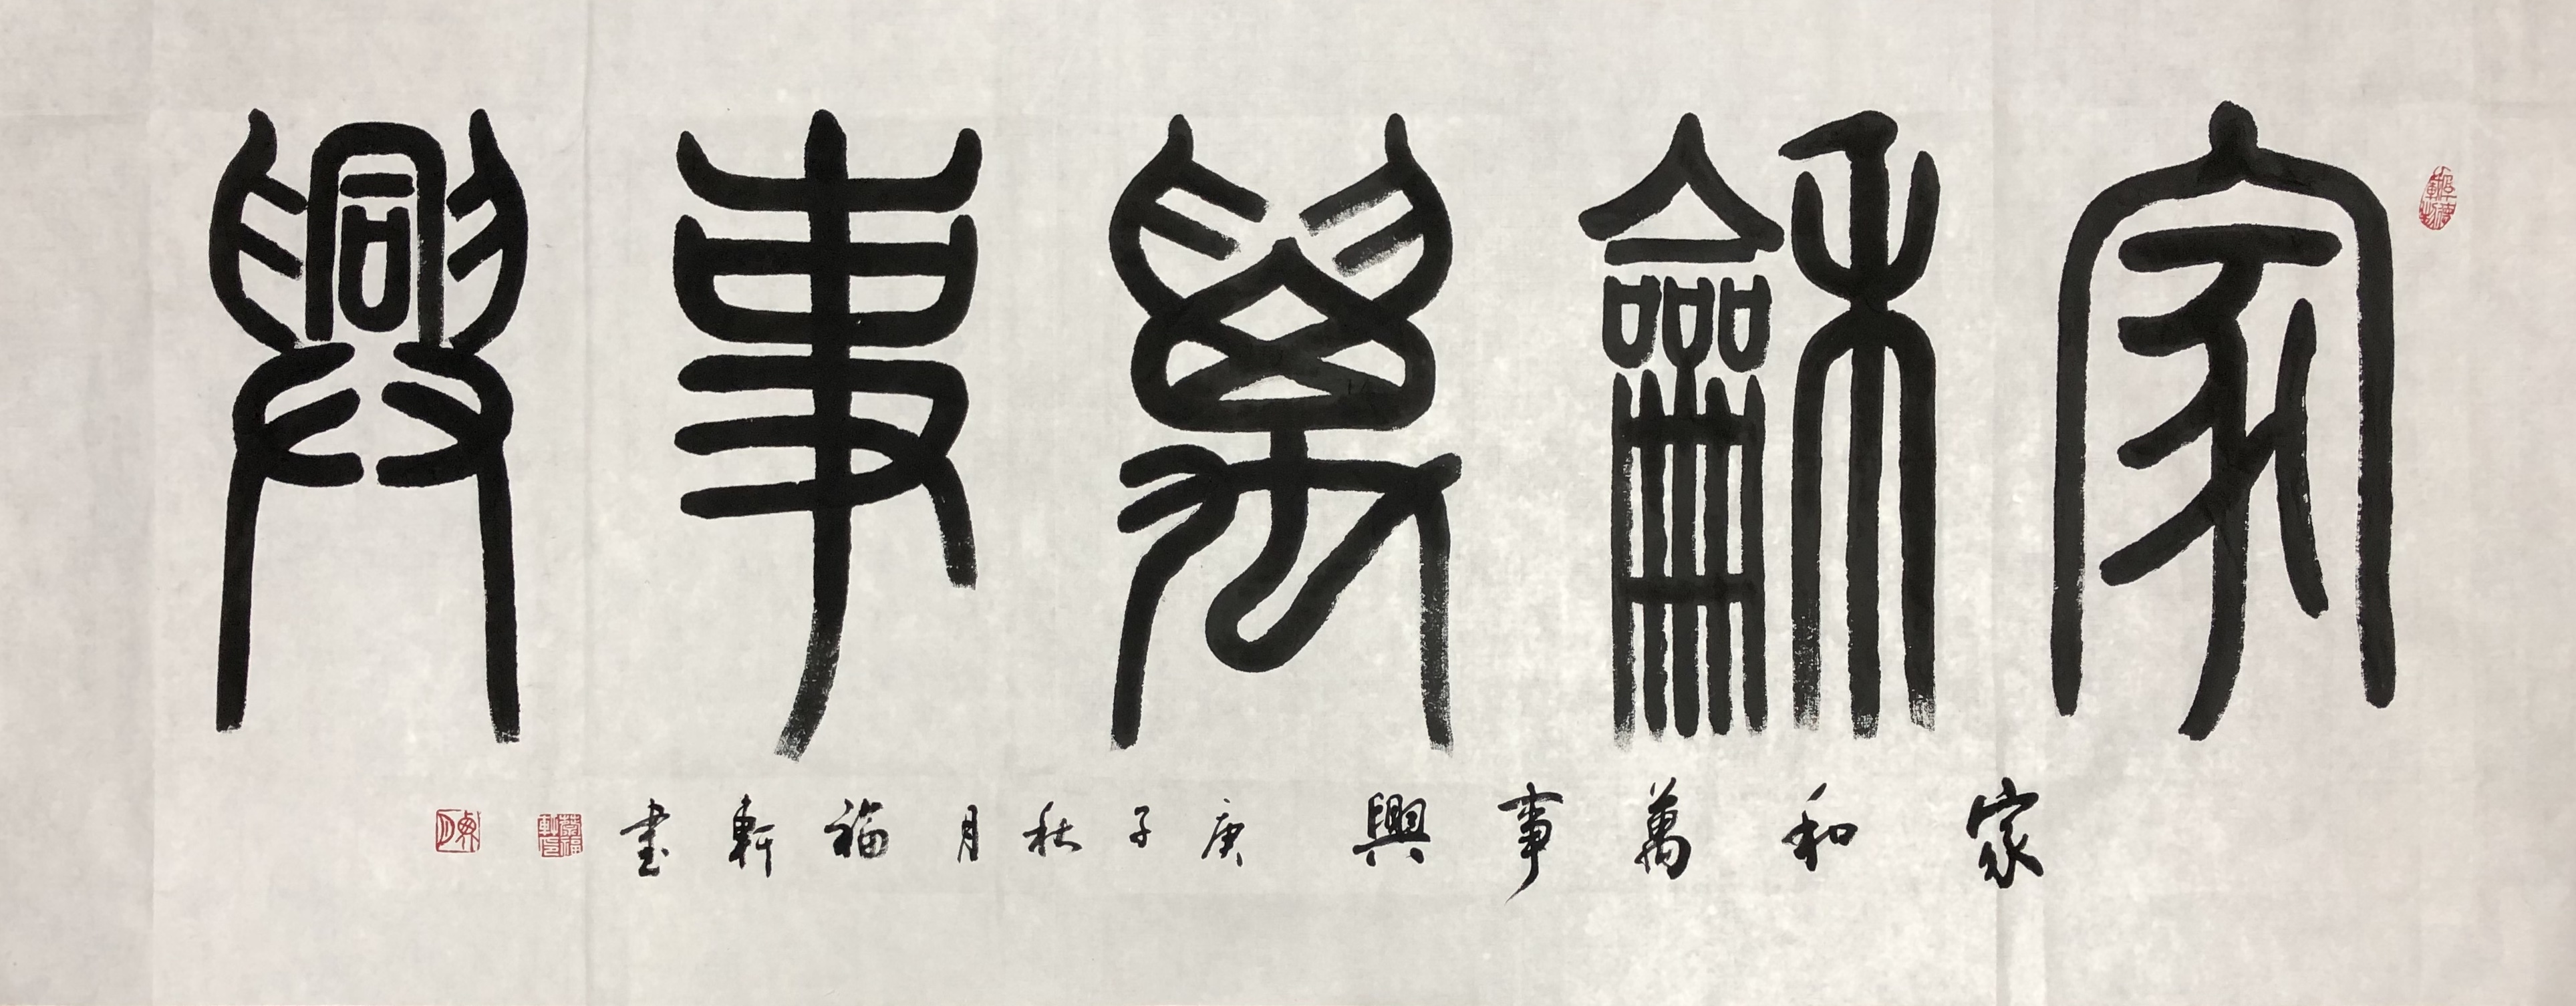 家龢萬事興
家和萬事興 庚子秋月 福軒書